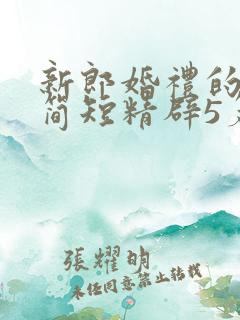 新郎婚禮的
簡短精辟5
張耀明
未任同意禁止轉載